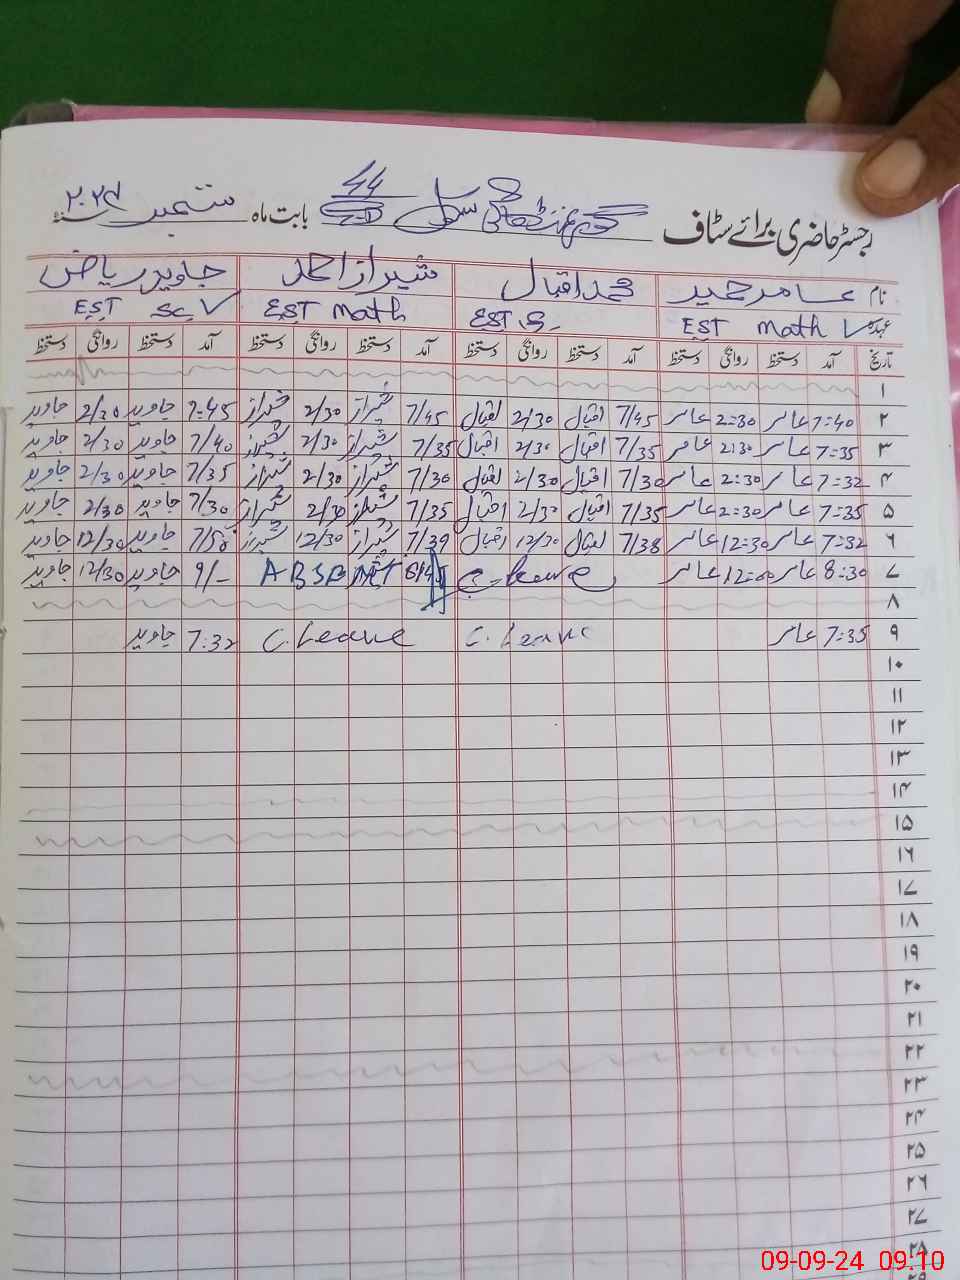 رجسٹر حاضری برائے سٹاف گورنمنٹ ہائی سکول 44 بابت ماہ ستمبر سنہ ۲۰۲۴
نام عامر حمید محمد اقبال شیراز احمد جاوید ریاض
عہدہ EST Math EST Sc. EST Math EST Sc
تاریخ آمد دستخط روانگی دستخط آمد دستخط روانگی دستخط آمد دستخط روانگی دستخط آمد دستخط روانگی دستخط
۱
۲ 7:40 عامر 2:30 عامر 7/45 اقبال 2/30 اقبال 7/45 شیراز 2/30 شیراز 7:45 جاوید 2/30 جاوید
۳ 7:35 عامر 2:30 عامر 7/35 اقبال 2/30 اقبال 7/35 شیراز 2/30 شیراز 7/40 جاوید 2/30 جاوید
۴ 7:32 عامر 2:30 عامر 7/30 اقبال 2/30 اقبال 7/30 شیراز 2/30 شیراز 7/35 جاوید 2/30 جاوید
۵ 7:35 عامر 2:30 عامر 7/35 اقبال 2/30 اقبال 7/35 شیراز 2/30 شیراز 7/30 جاوید 2/30 جاوید
۶ 7:32 عامر 12:30 عامر 7/38 اقبال 12/30 اقبال 7/39 شیراز 12/30 شیراز 7/50 جاوید 12/30 جاوید
۷ 8:30 عامر 12:00 عامر C-Leave ABSENT 9/- جاوید 12/30 جاوید
۸
۹ 7:35 عامر C. Leave C. Leave 7:32 جاوید
۱۰
۱۱
۱۲
۱۳
۱۴
۱۵
۱۶
۱۷
۱۸
۱۹
۲۰
۲۱
۲۲
۲۳
۲۴
۲۵
۲۶
۲۷
۲۸
09-09-24 09:10